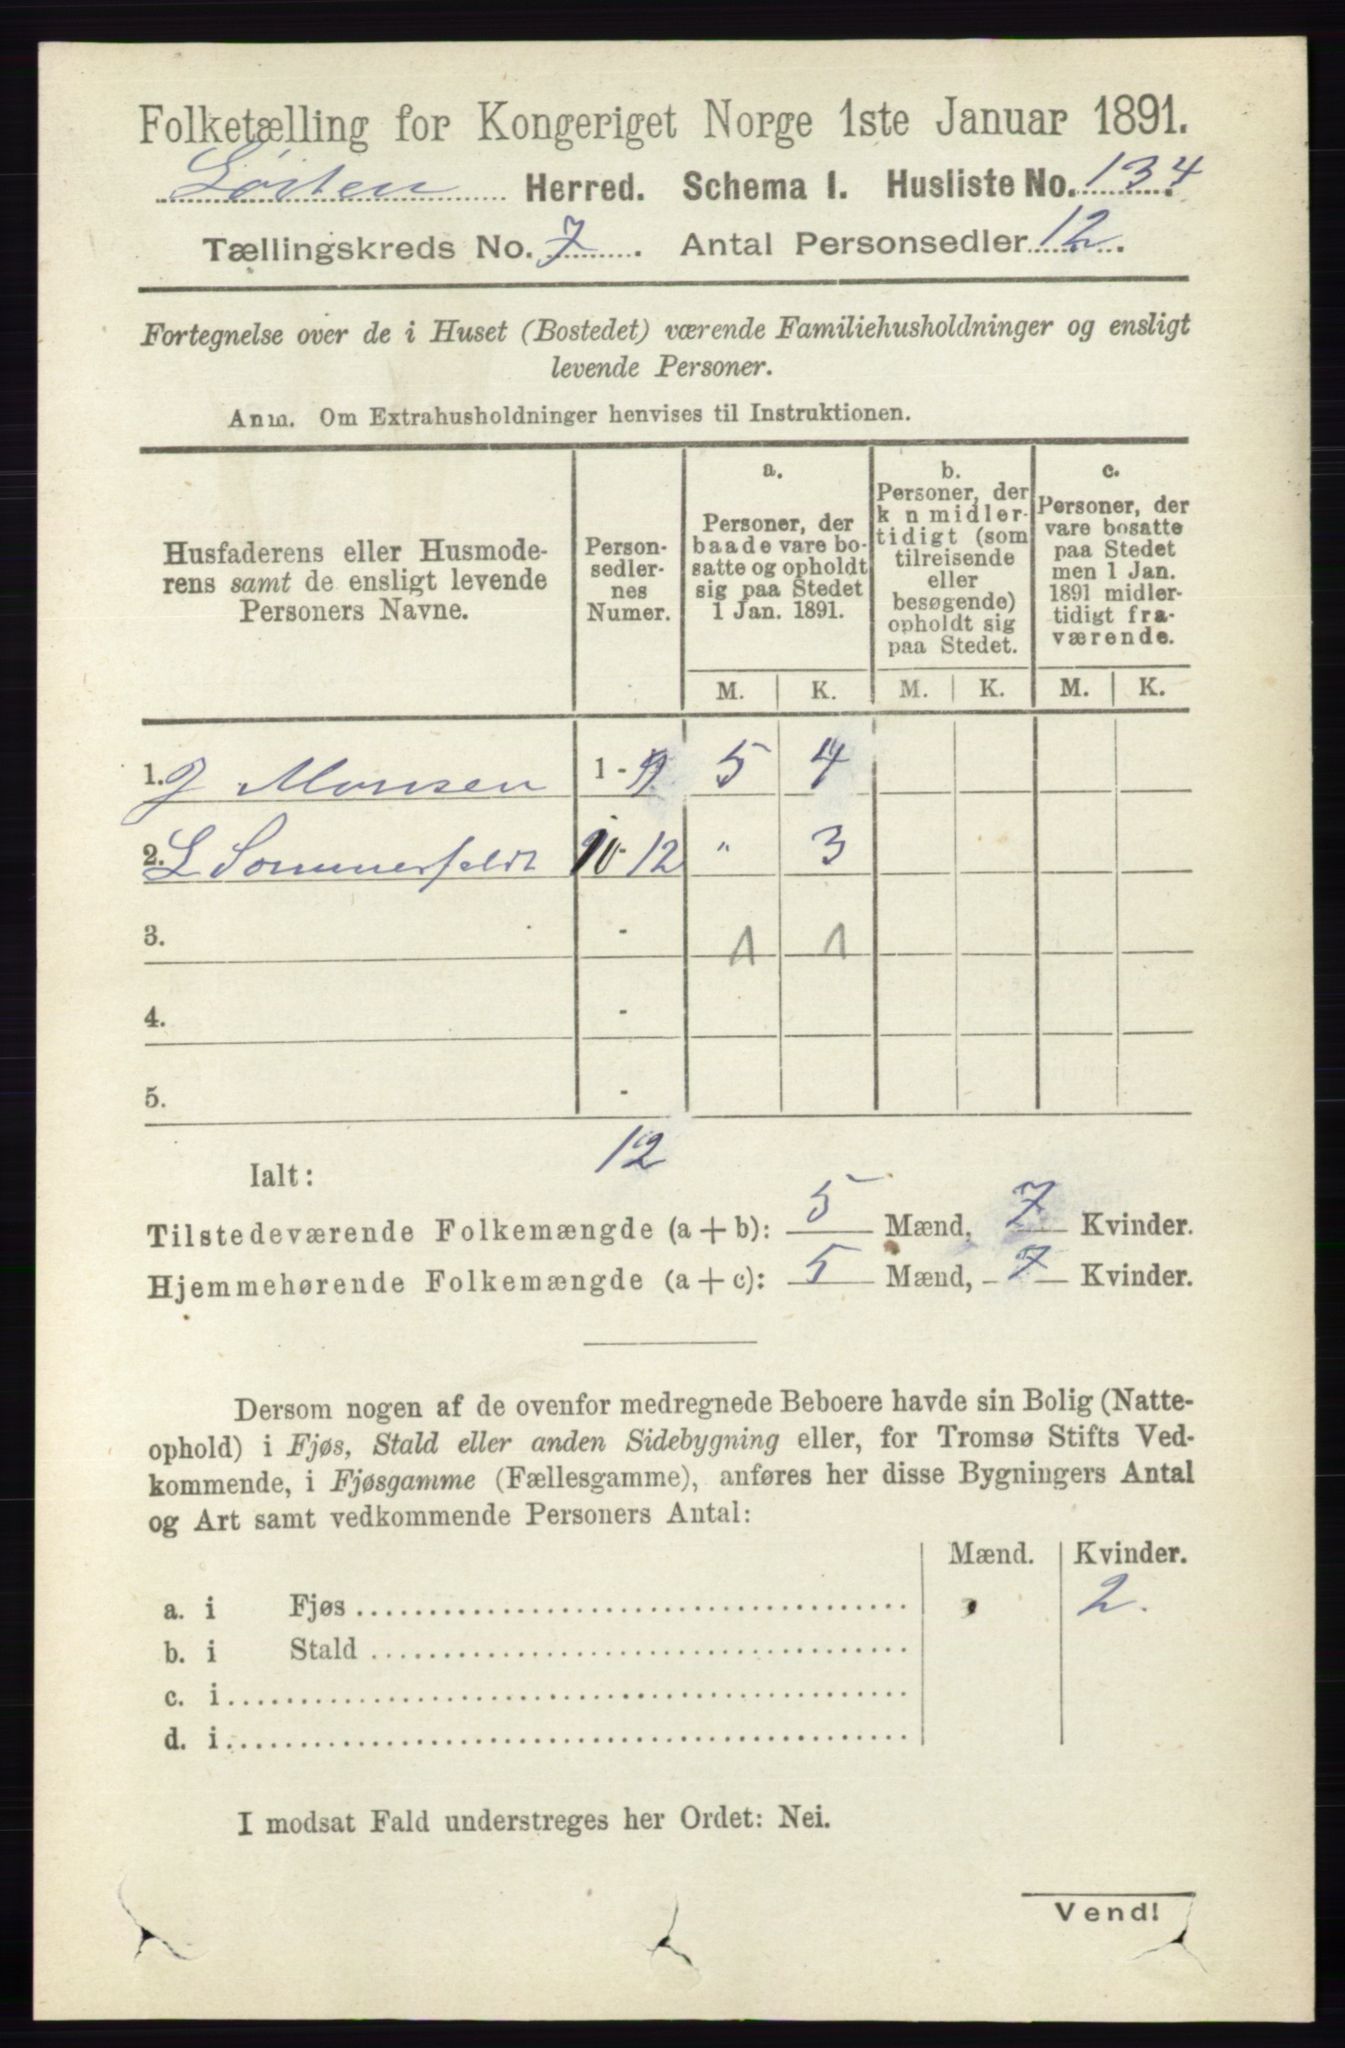 Folketælling for Kongeriget Norge 1ste Januar 1891.
Løiten Herred. Schema I. Husliste No. 134.
Tællingskreds No. 7. Antal Personsedler 12.
Fortegnelse over de i Huset (Bostedet) værende Familiehusholdninger og ensligt
levende Personer.
Anm. Om Extrahusholdninger henvises til Instruktionen.
Husfaderens eller Husmode-
rens samt de ensligt levende
Personers Navne.
Person-
sedler-
nes
Numer.
a.
Personer, der
baade vare bo-
satte og opholdt
sig paa Stedet
1 Jan. 1891.
b.
Personer, der
k n midler-
tidigt (som
tilreisende
eller
besøgende)
opholdt sig
paa Stedet.
c.
Personer, der
vare bosatte
paa Stedet
men 1 Jan.
1891 midler-
tidigt fra-
værende.
M. K. M. K. M. K.
1. J Monsen 1 - 9 5 4
2. L Sommerfeldt 10 - 12 " 3
3. - 1 1
4. -
5. -
Ialt: 12
Tilstedeværende Folkemængde (a + b): 5 Mænd, 7 Kvinder.
Hjemmehørende Folkemængde (a + c): 5 Mænd, 7 Kvinder.
Dersom nogen af de ovenfor medregnede Beboere havde sin Bolig (Natte-
ophold) i Fjøs, Stald eller anden Sidebygning eller, for Tromsø Stifts Ved-
kommende, i Fjøsgamme (Fællesgamme), anføres her disse Bygningers Antal
og Art samt vedkommende Personers Antal:
Mænd. Kvinder.
a. i Fjøs 2.
b. i Stald
c. i
d. i
I modsat Fald understreges her Ordet: Nei.
Vend!